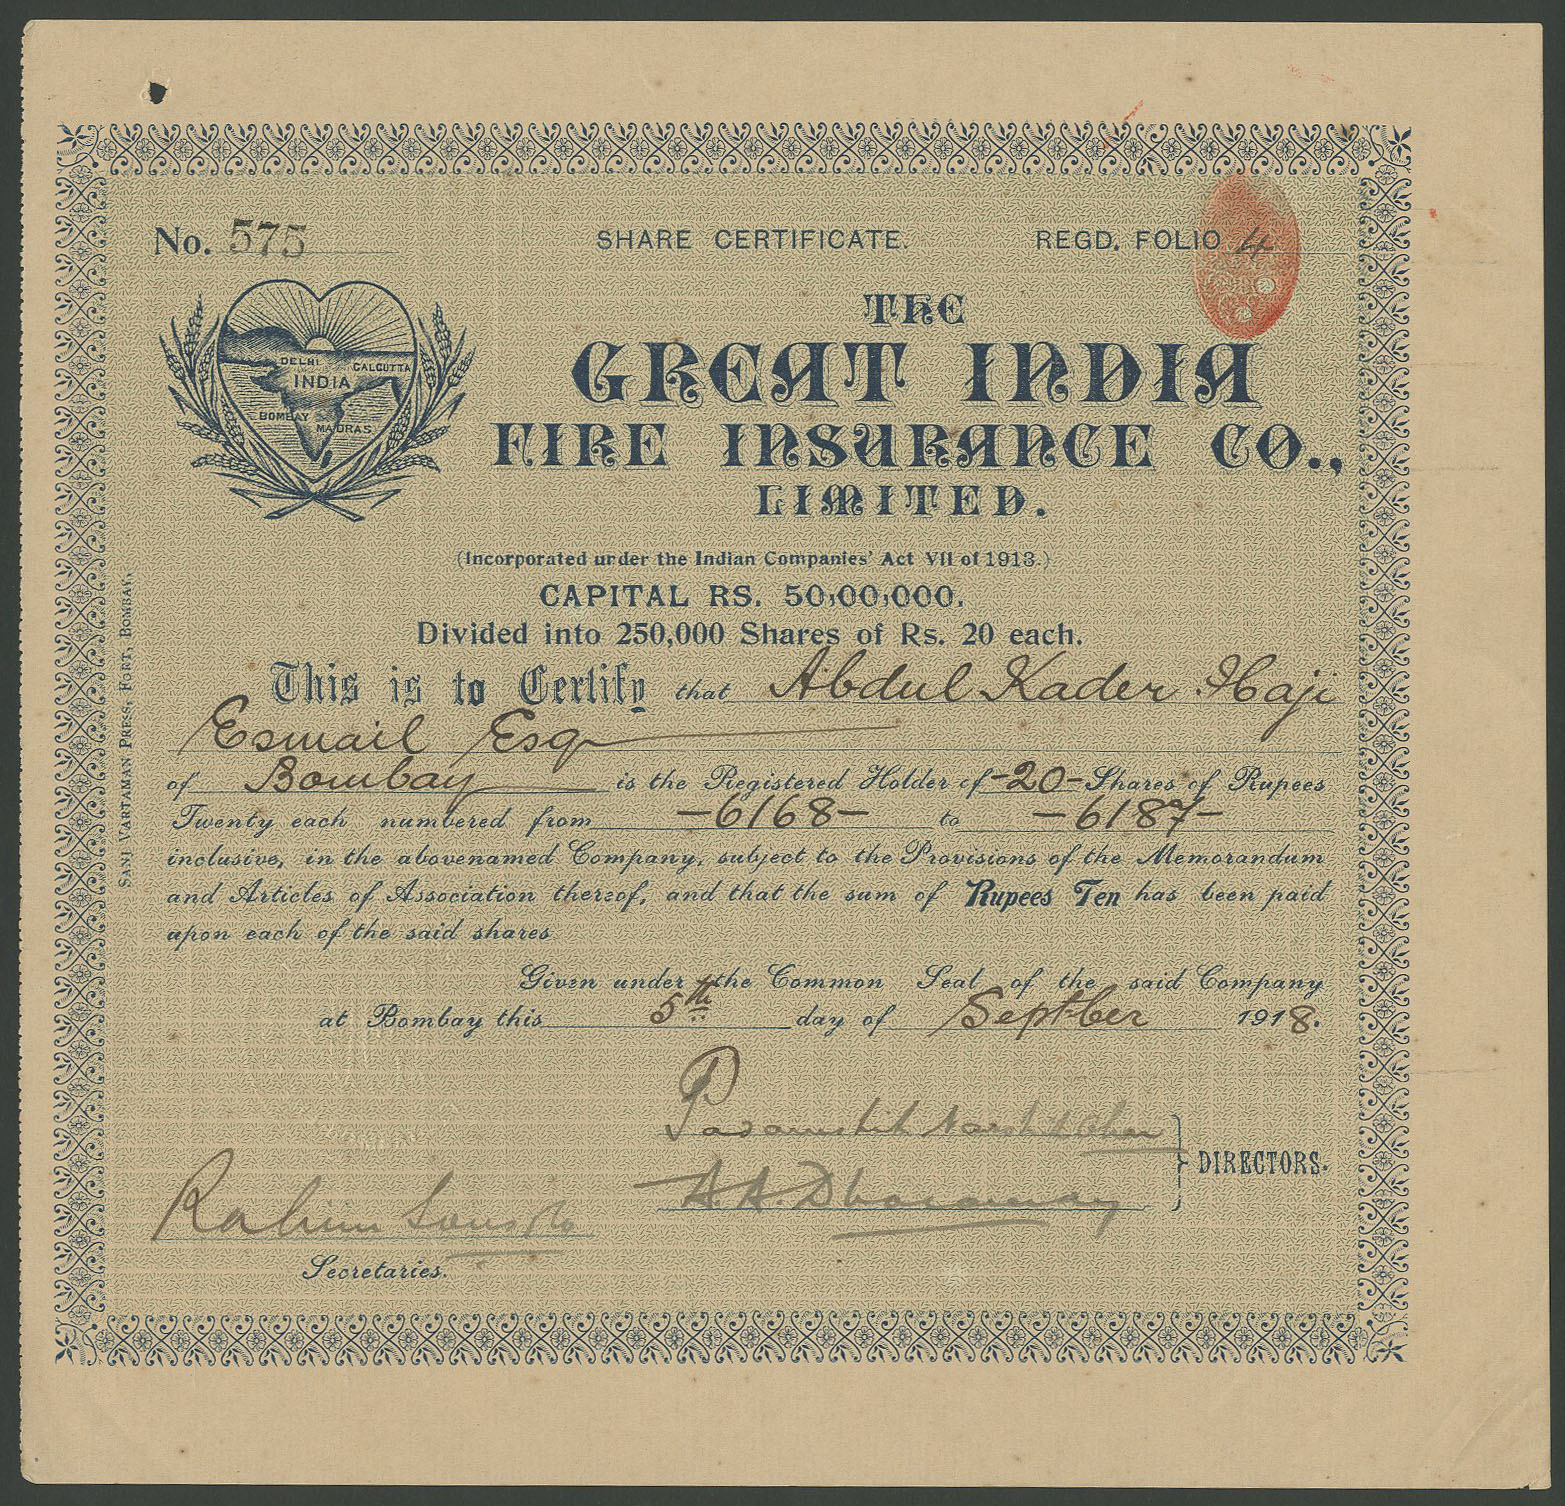 No. 575 SHARE CERTIFICATE. REGD. FOLIO 4
THE
GREAT INDIA
FIRE INSURANCE CO.,
LIMITED.
DELHI
CALCUTTA
INDIA
BOMBAY
MADRAS
(Incorporated under the Indian Companies' Act VII of 1913.)
CAPITAL RS. 50,00,000.
Divided into 250,000 Shares of Rs. 20 each.
This is to Certify that Abdul Kader Haji
Esmail Esqr
of Bombay is the Registered Holder of -20- Shares of Rupees
Twenty each numbered from -6168- to -6187-
inclusive, in the abovenamed Company, subject to the Provisions of the Memorandum
and Articles of Association thereof, and that the sum of Rupees Ten has been paid
upon each of the said shares
Given under the Common Seal of the said Company
at Bombay this 5th day of Septber 1918.
DIRECTORS.
Rahim
Secretaries.
SANJ VARTAMAN PRESS, FORT, BOMBAY.